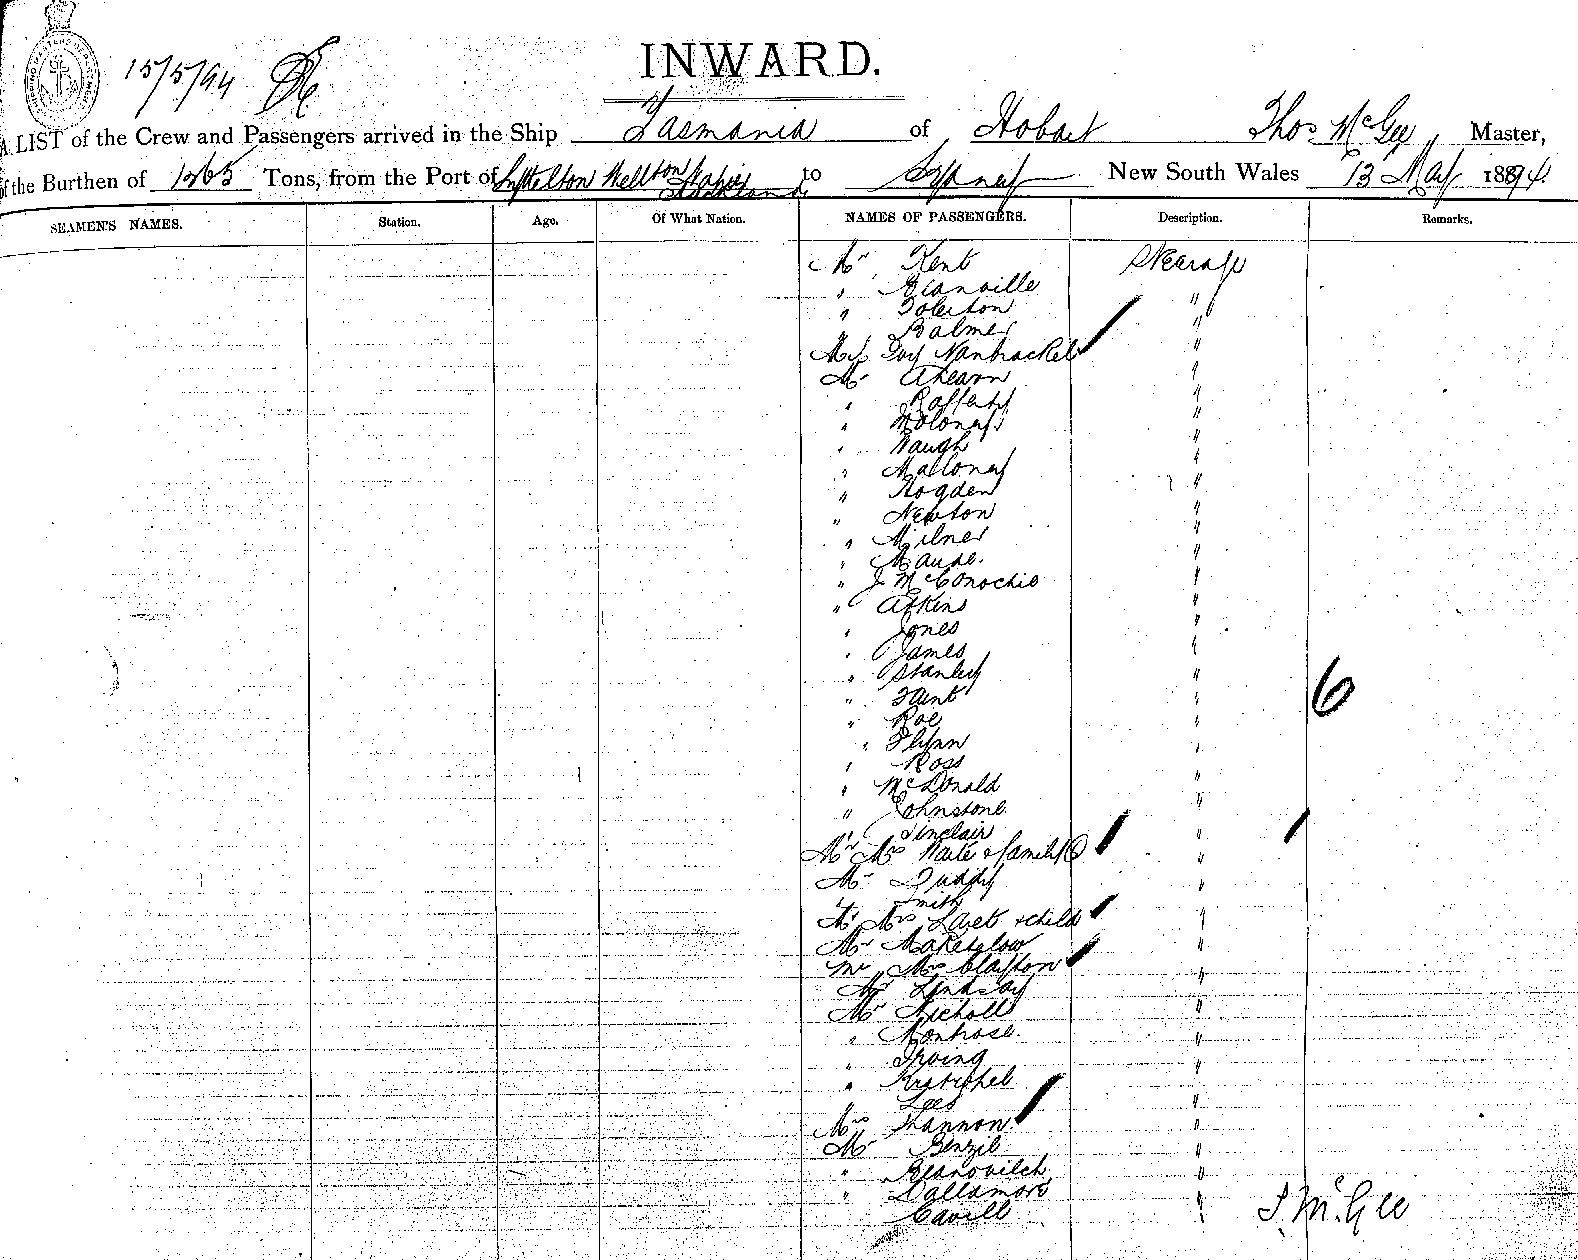 15/5/94
INWARD.
A LIST of the Crew and Passengers arrived in the Ship Tasmania of Hobart Thos McGee, Master,
of the Burthen of 1265 Tons, from the Port of Lyttelton Wellton Napier Auckland to Sydney New South Wales 13 May 1894.
SEAMEN'S NAMES. Station. Age. Of What Nation. NAMES OF PASSENGERS. Description. Remarks.
Mr Kent Steerage
" Granville "
" Tolerton "
" Balmer "
Guy Vanbrackel "
Mr Ahearn "
" Rafferty "
" Molonay "
" Waugh "
" Malloney "
" Hogden "
" Newton "
" Milner "
" Maude. "
" J McConochie "
" Atkins "
" Jones "
" James "
" Stanley "
" Hunt "
" Roe "
" Flynn "
" Ross "
" McDonald "
" Johnstone "
" Sinclair "
Mr Mrs Waite & family "
Mr Duddy "
" Smith
Mr Mrs & child "
Mr Makeglow "
Mr Mrs Clayton "
Lindsay "
Mr Nicholl "
" Montrose "
" Irving "
" "
" Lees "
Mrs Shannon "
Mr Benzil "
" "
" Dallamore "
Cavill "
6
T. McGee